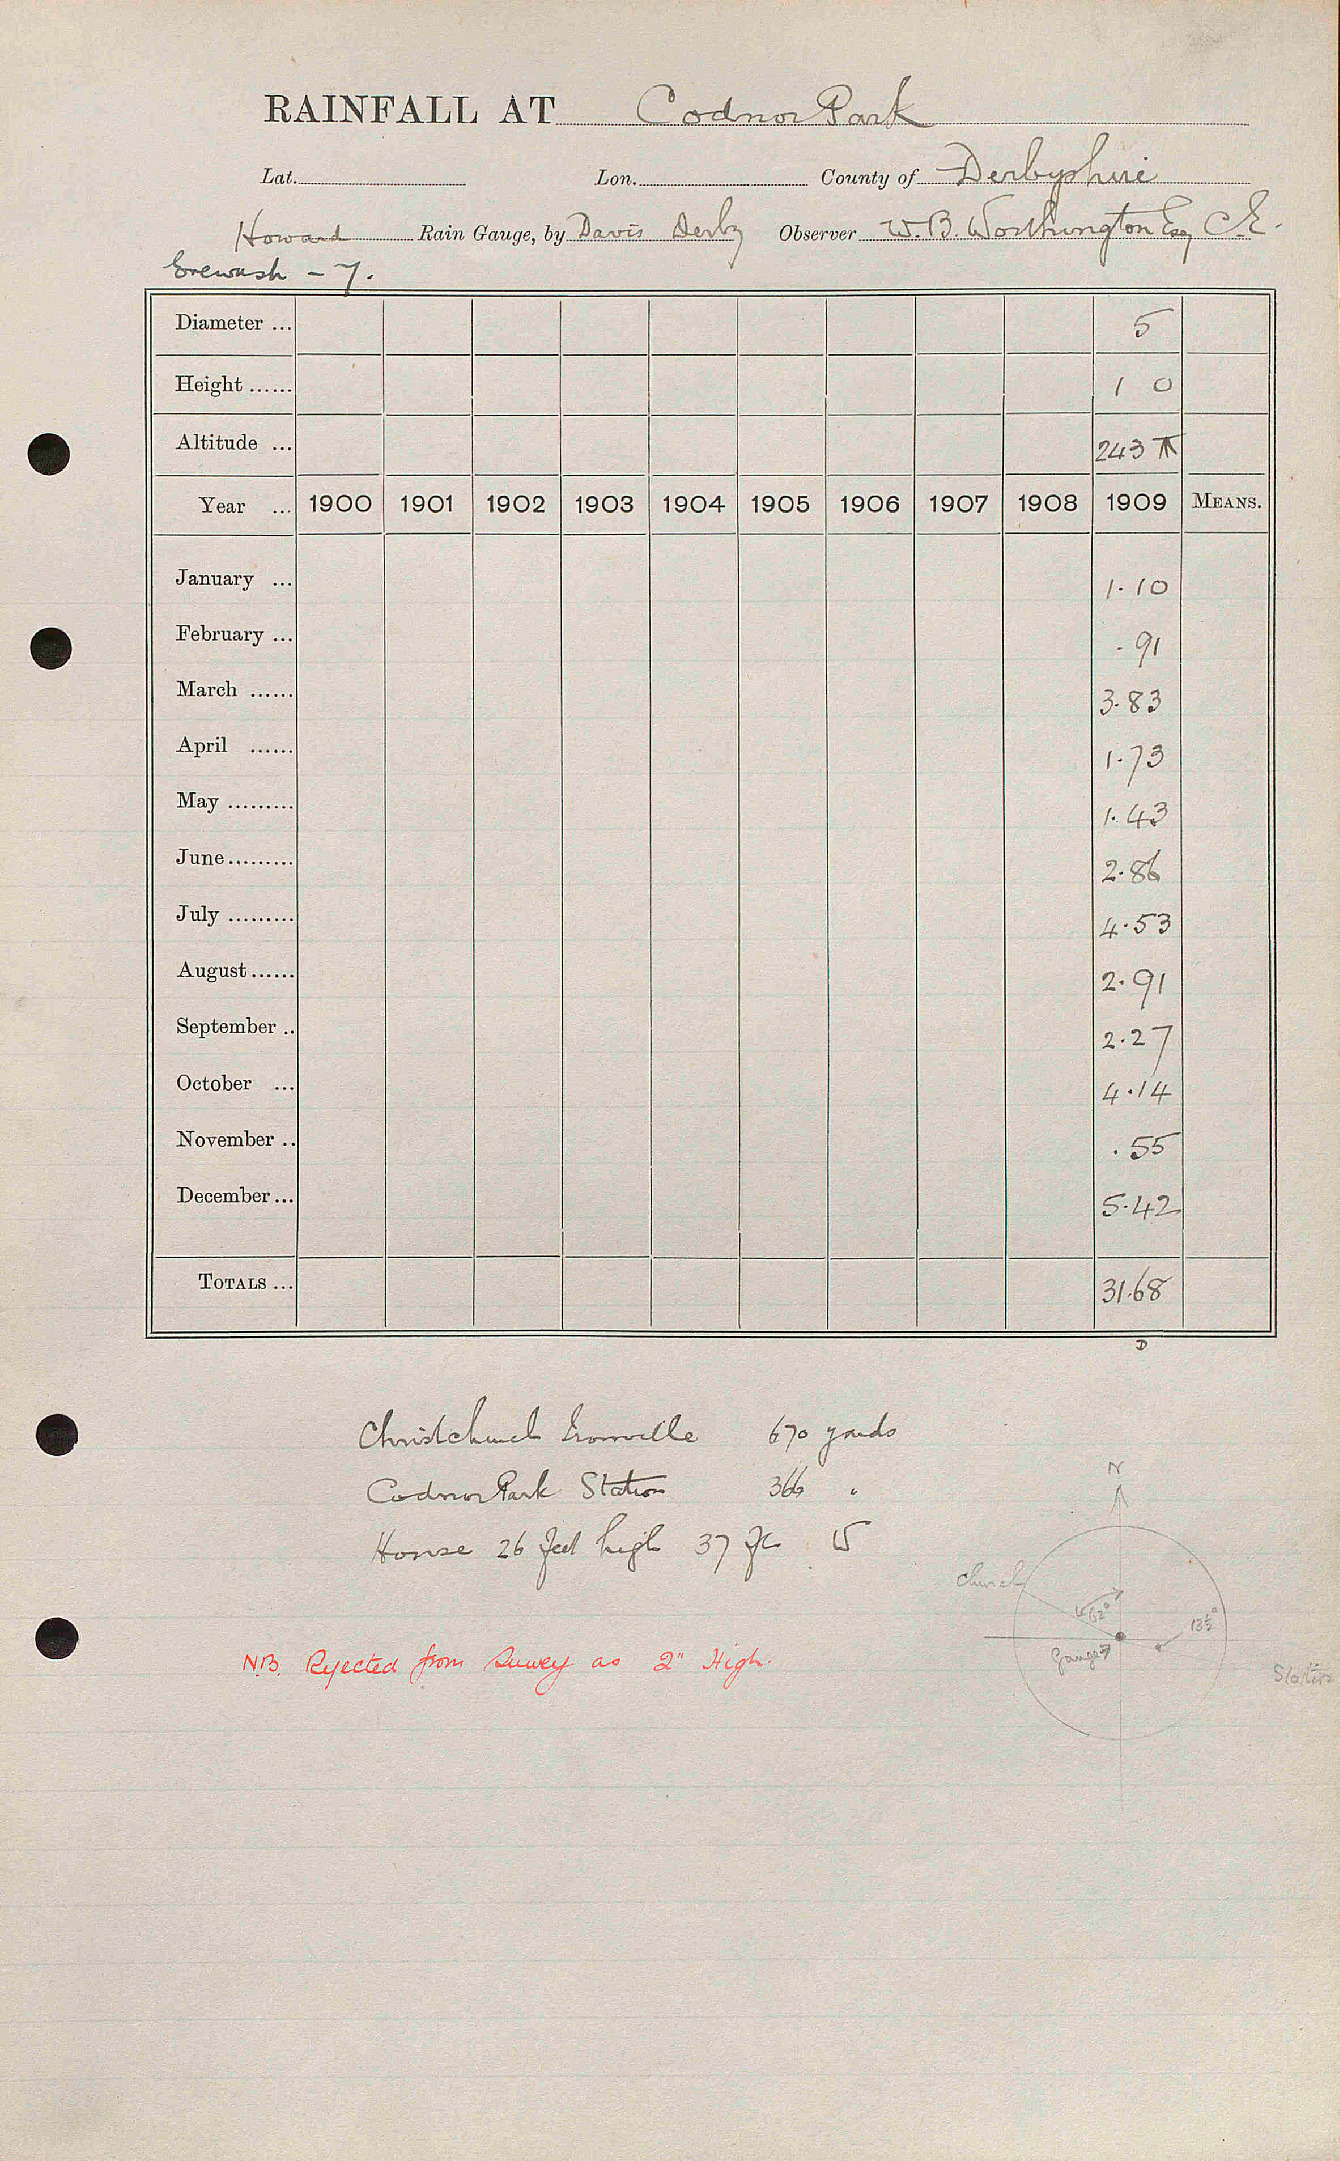 RAINFALL AT Codnor Park
Lat. Lon. County of Derbyshire
Howard Rain Gauge, by Davis Derby Observer W. B. Worthington Esq C.E.
Erewash - 7.
Diameter ... 5
Height ...... 1 0
Altitude ... 243
Year ... 1900 1901 1902 1903 1904 1905 1906 1907 1908 1909 MEANS.
January ... 1.10
February ... .91
March ...... 3.83
April ...... 1.73
May ......... 1.43
June ......... 2.86
July ......... 4.53
August ...... 2.91
September .. 2.27
October ... 4.14
November .. .55
December ... 5.42
TOTALS ... 31.68
D
Christchurch Ironville 670 yards
Codnor Park Station 366 "
House 26 feet high 37 ft W
N
Church
62°
13½°
Gauge
Station
N.B. Rejected from Survey as 2" High.